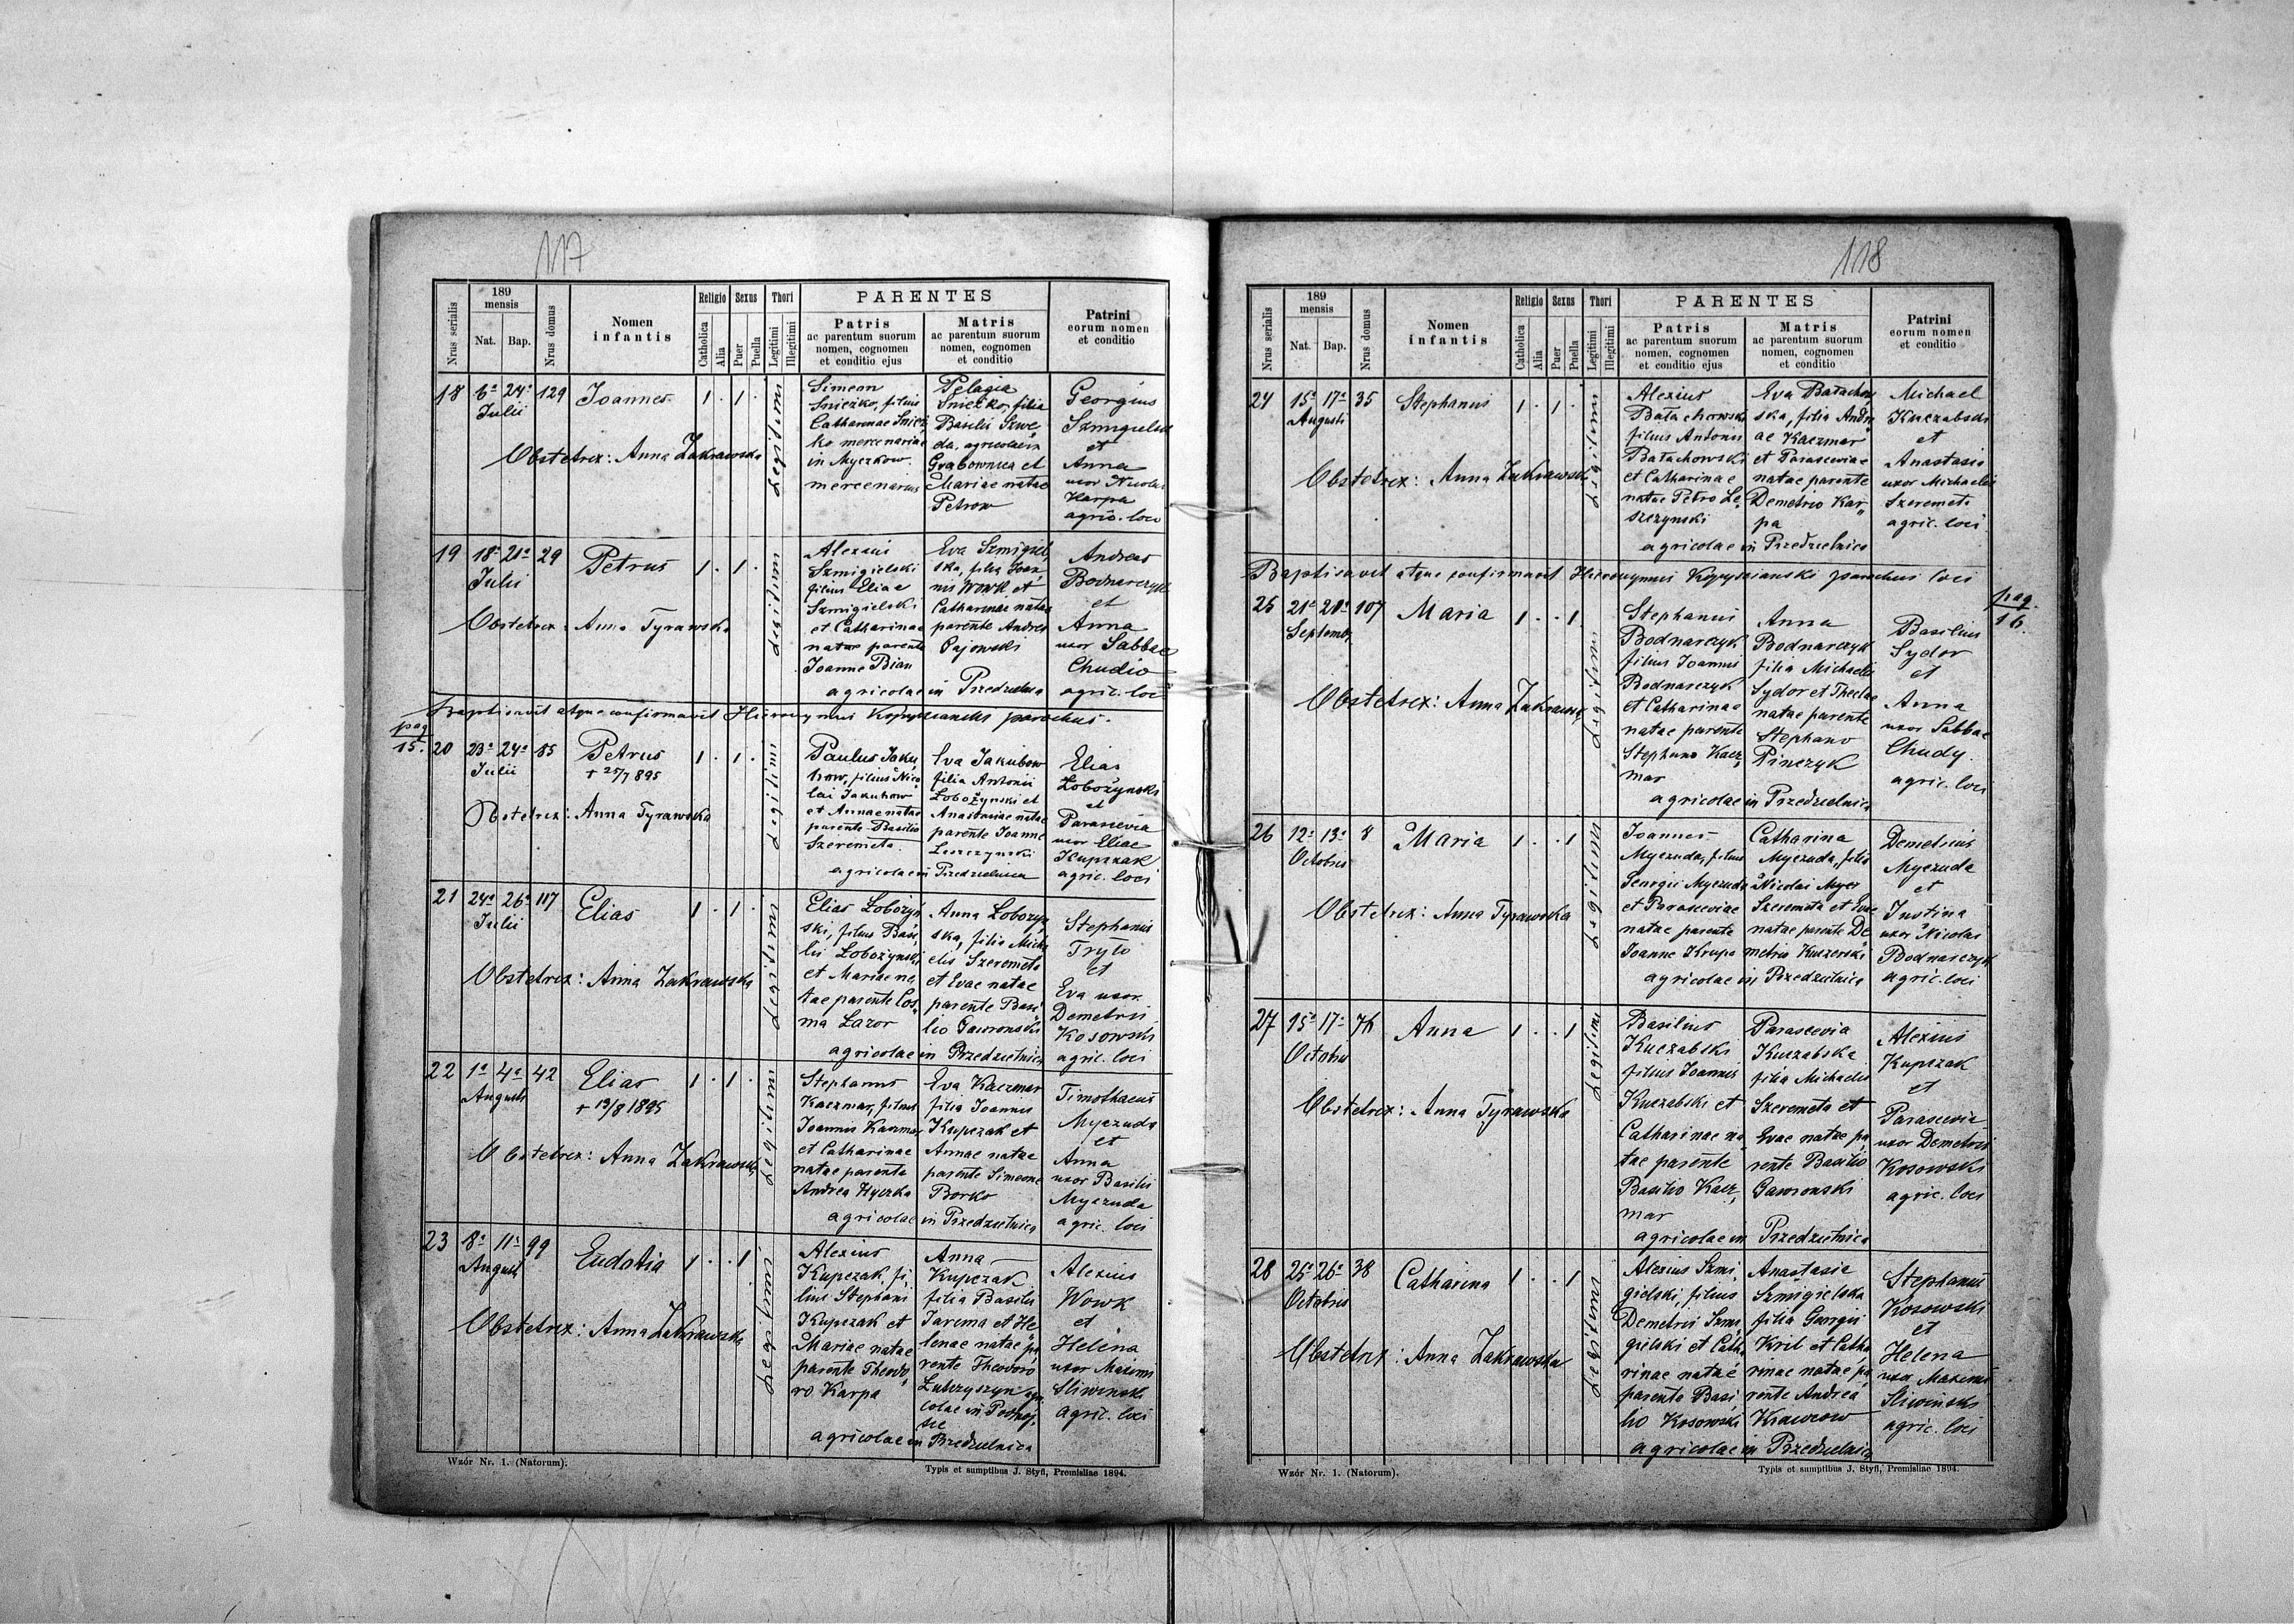 117
Nrus serialis
189
mensis
Nat.
Bap.
Nrus domus
Nomen
infantis
Religio
Catholica
Alia
Sexus
Puer
Puella
Thori
Legitimi
Illegitimi
PARENTES
Patris
ac parentum suorum
nomen, cognomen
et conditio ejus
Matris
ac parentum suorum
nomen, cognomen
et conditio
Patrini
eorum nomen
et conditio
18 6a 24a 129 Joannes 1 . 1 .
Julii
Obstetrix: Anna Zakrawska
Legitimi
Simeon
Śnieżko, filius
Catharinae Śnież,
ko mercenariae
in Myczkow
mercenarius
Pelagia
Śnieżko, filia
Basilii Szwe,
da, agricolae in
Grabownica et
Mariae natae
Petrow
Georgius
Szmigielski
et
Anna
uxor Nicolai
Karpa
agric. loci
19 18a 21a 29 Petrus 1 . 1 .
Julii
Obstetrix: Anna Tyrawska
Legitimi
Alexius
Szmigielski
filius Eliae
Szmigielski
et Catharinae
natae parente
Joanne Bian
Eva Szmigiel,
ska, filia Joan,
nis Wowk et
Catharinae natae
parente Andrea
Gajowski
agricolae in Przedzielnica
Andreas
Bodnarczyk
et
Anna
uxor Sabbae
Chudio
agric. loci
Baptisavit atque confirmavit Hieronymus Kopyscianski parochus.
pag
15.
20 23a 24a 85 Petrus 1 . 1 .
Julii + 25/7 895
Obstetrix: Anna Tyrawska
Legitimi
Paulus Jaku,
bow, filius Nico
lai Jakubow
et Annae natae
parente Basilio
Szeremeta.
Eva Jakubow
filia Antonii
Łobożynski et
Anastasiae natae
parente Joanne
Leszczynski
agricolae in Przedzielnica
Elias
Łobożynski
et
Parascevia
uxor Eliae
Kupczak
agric. loci
21 24a 26a 117 Elias 1 . 1 .
Julii
Obstetrix: Anna Zakrawska
Legitimi
Elias Łobożyń
ski, filius Basi,
lii Łobożynski
et Mariae na,
tae parente Cos,
ma Lazor
Anna Łobożyn,
ska, filia Micha
elis Szeremeta
et Evae natae
parente Basi,
lio Gawronski
agricolae in Przedzielnica
Stephanus
Tryło
et
Eva uxor
Demetrii
Kosowski
agric. loci
22 1a 4a 42 Elias 1 . 1 .
Augusti + 19/8 1895
Obstetrix: Anna Zakrawska
Legitimi
Stephanus
Kaczmar, filius
Joannis Kaczmar
et Catharinae
natae parente
Andrea Hyczka
Eva Kaczmar
filia Joannis
Kupczak et
Annae natae
parente Simeone
Borko
agricolae in Przedzielnica
Timothaeus
Myczuda
et
Anna
uxor Basilii
Myczuda
agric. loci
23 8a 11a 99 Eudotia 1 . . 1
Augusti
Obstetrix: Anna Zakrawska
Legitimi
Alexius
Kupczak, fi,
lius Stephani
Kupczak et
Mariae natae
parente Theodo,
ro Karpa
Anna
Kupczak
filia Basilii
Jarema et He,
lenae natae pa
rente Theodoro
agri
colae in
agricolae in Przedzielnica
Alexius
Wowk
et
Helena
uxor Maximi
Sliwinski
agric. loci
Wzór Nr. 1. (Natorum).
Typis et sumptibus J. Styfi, Premisliae 1894.
118
Nrus serialis
189
mensis
Nat.
Bap.
Nrus domus
Nomen
infantis
Religio
Catholica
Alia
Sexus
Puer
Puella
Thori
Legitimi
Illegitimi
PARENTES
Patris
ac parentum suorum
nomen, cognomen
et conditio ejus
Matris
ac parentum suorum
nomen, cognomen
et conditio
Patrini
eorum nomen
et conditio
24 15a 17a 35 Stephanus 1 . 1 .
Augusti
Obstetrix: Anna Zakrawska
Legitimi
Alexius
Bałachowski
filius Antonii
Bałachowski
et Catharinae
natae Petro Le,
szczynski
Eva Bałachow,
ska, filia Andre
ae Kaczmar
et Parasceviae
natae parente
Demetrio Kar,
pa
agricolae in Przedzielnica
Michael
Kuczabski
et
Anastasia
uxor Michaelis
Szeremeta
agric. loci
Baptisavit atque confirmavit Hieronymus Kopyscianski parochus loci
pag.
16.
25 21a 21a 107 Maria 1 . . 1
Septemb.
Obstetrix: Anna Zakrawska
Legitimi
Stephanus
Bodnarczyk
filius Joannis
Bodnarczyk
et Catharinae
natae parente
Stephano Kacz,
mar
Anna
Bodnarczyk
filia Michaelis
Sydor et Theclae
natae parente
Stephano
Pinczyk
agricolae in Przedzielnica
Basilius
Sydor
et
Anna
uxor Sabbae
Chudy.
agric. loci
26 12a 13a 8 Maria 1 . . 1
Octobris
Obstetrix: Anna Tyrawska
Legitimi
Joannes
Myczuda, filius
Georgii Myczuda
et Parasceviae
natae parente
Joanne Krupa
Catharina
Myczuda, filia
Nicolai Mycz
Szeremeta et Evae
natae parente De
metrio Kuszerski
agricolae in Przedzielnica
Demetrius
Myczuda
et
Justina
uxor Nicolai
Bodnarczyk
agric. loci
27 15a 17a 76 Anna 1 . . 1
Octobris
Obstetrix: Anna Tyrawska
Legitimi
Basilius
Kuczabski
filius Joannis
Kuczabski et
Catharinae na,
tae parente
Basilio Kacz,
mar
Parascevia
Kuczabska
filia Michaelis
Szeremeta et
Evae natae pa
rente Basilio
Gawronski
agricolae in Przedzielnica
Alexius
Kupczak
et
Parascevia
uxor Demetrii
Kosowski
agric. loci
28 25a 26a 38 Catharina 1 . . 1
Octobris
Obstetrix: Anna Zakrawska
Legitimi
Alexius Szmi,
gielski, filius
Demetrii Szmi,
gielski et Catha
rinae natae
parente Basi
lio Kosowski
Anastasia
Szmigielska
filia Georgii
Kril et Catha
rinae natae pa
rente Andrea
Krawcow
agricolae in Przedzielnica
Stephanus
Kosowski
et
Helena
uxor Maximi
Sliwinski
agric. loci
Wzór Nr. 1. (Natorum).
Typis et sumptibus J. Styfi, Premisliae 1894.